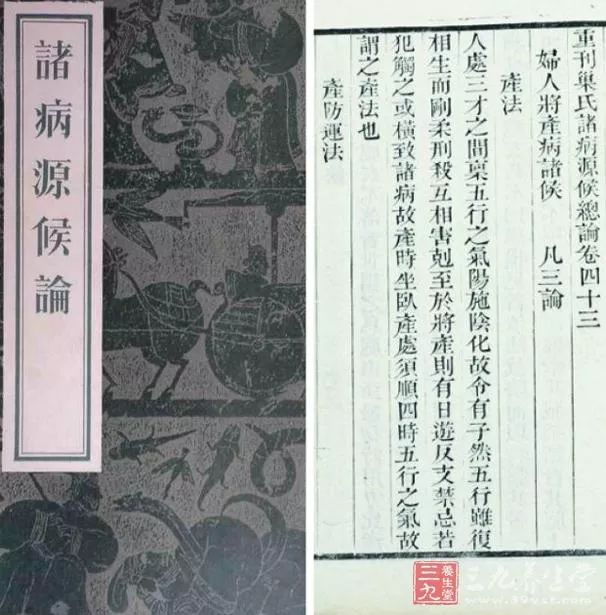 諸病源候論
重刊巢氏諸病源候總論卷四十三
婦人將產病諸候　凡三論
產法
人處三才之間稟五行之氣陽施陰化故令有子然五行雖復
相生而剛柔刑殺互相害剋至於將產則有日遊反支禁忌若
犯觸之或橫致諸病故產時坐臥產處須順四時五行之氣故
謂之產法也
產防運法
三九養生堂
三九養生堂
www.39yst.com